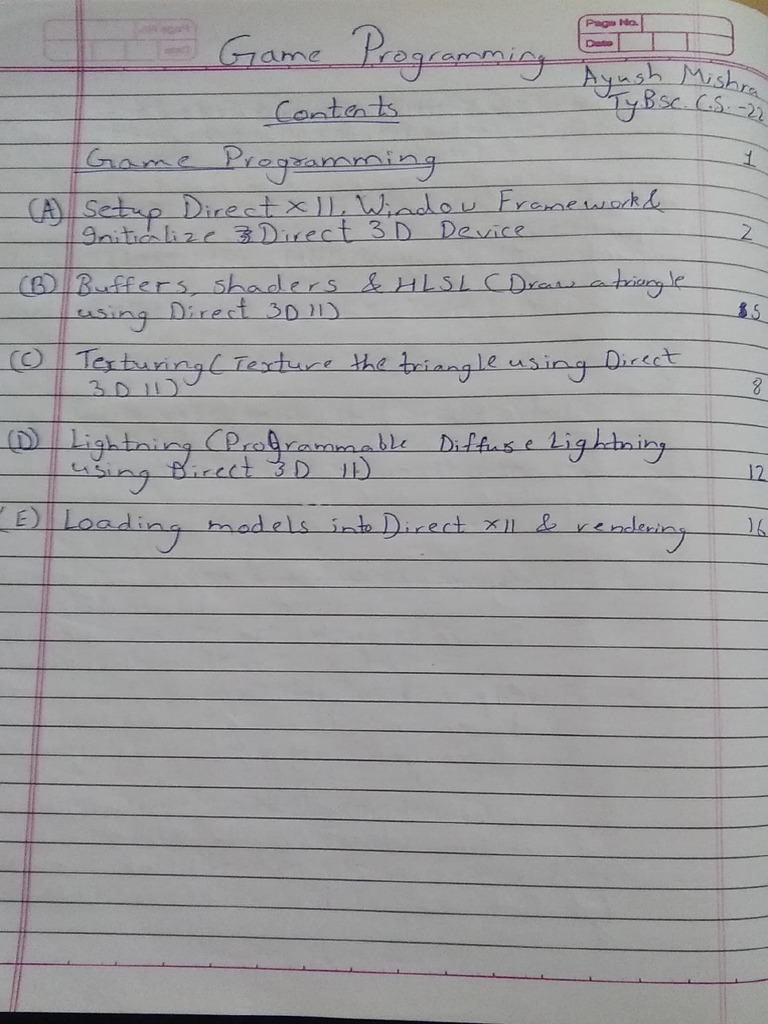 Page No.
Date
Game Programming
Ayush Mishra
TyBsc. C.S. -22
Contents
Game Programming 1
(A) Setup Direct X 11, Window Framework &
Initialize Direct 3D Device 2
(B) Buffers, shaders & HLSL (Draw a triangle
using Direct 3D 11) 5
(C) Texturing (Texture the triangle using Direct
3D 11) 8
(D) Lightning (Programmable Diffuse Lightning
using Direct 3D 11) 12
(E) Loading models into Direct X11 & rendering 16